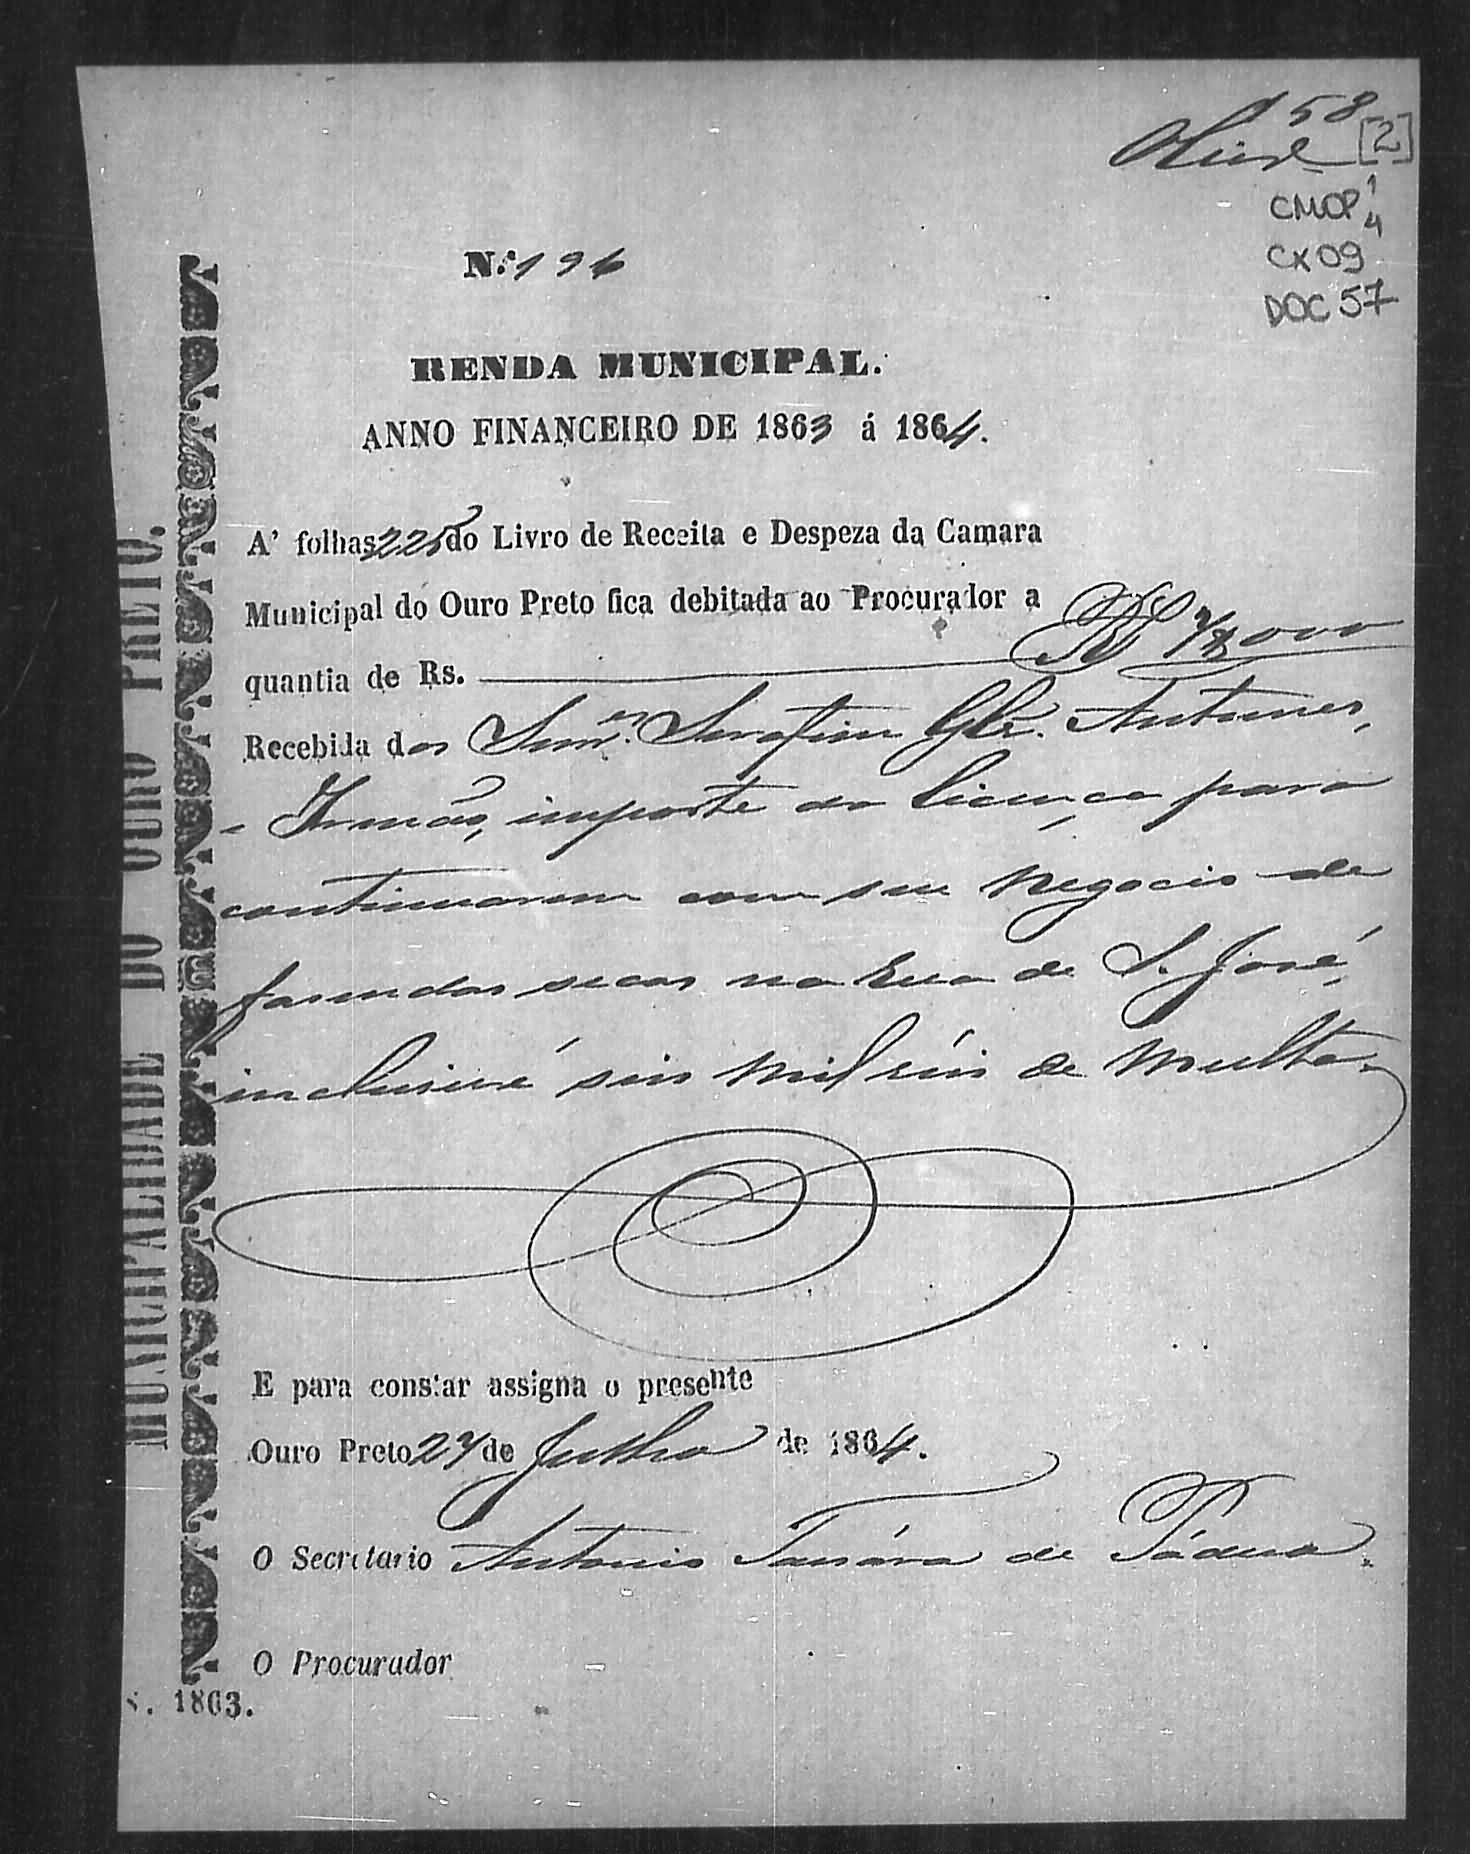 158
[2]
CMOP 1
4
CX 09
DOC 57
N.º 196
RENDA MUNICIPAL.
ANNO FINANCEIRO DE 1863 á 1864.
A' folhas 225 do Livro de Receita e Despeza da Camara
Municipal do Ouro Preto fica debitada ao Procurador a
quantia de Rs.
Recebida dos Snr.es Serafim Glz. Antunes,
e Irmão, importe da licença para
continuarem com seu negocio de
fasendas secas na Rua de S. José,
inclusivé seis mil réis de multa.
E para constar assigna o presente
Ouro Preto 27 de Julho de 1864.
O Secretario Antonio de Pádua.
O Procurador
MUNICIPALIDADE DO OURO PRETO.
S. 1863.